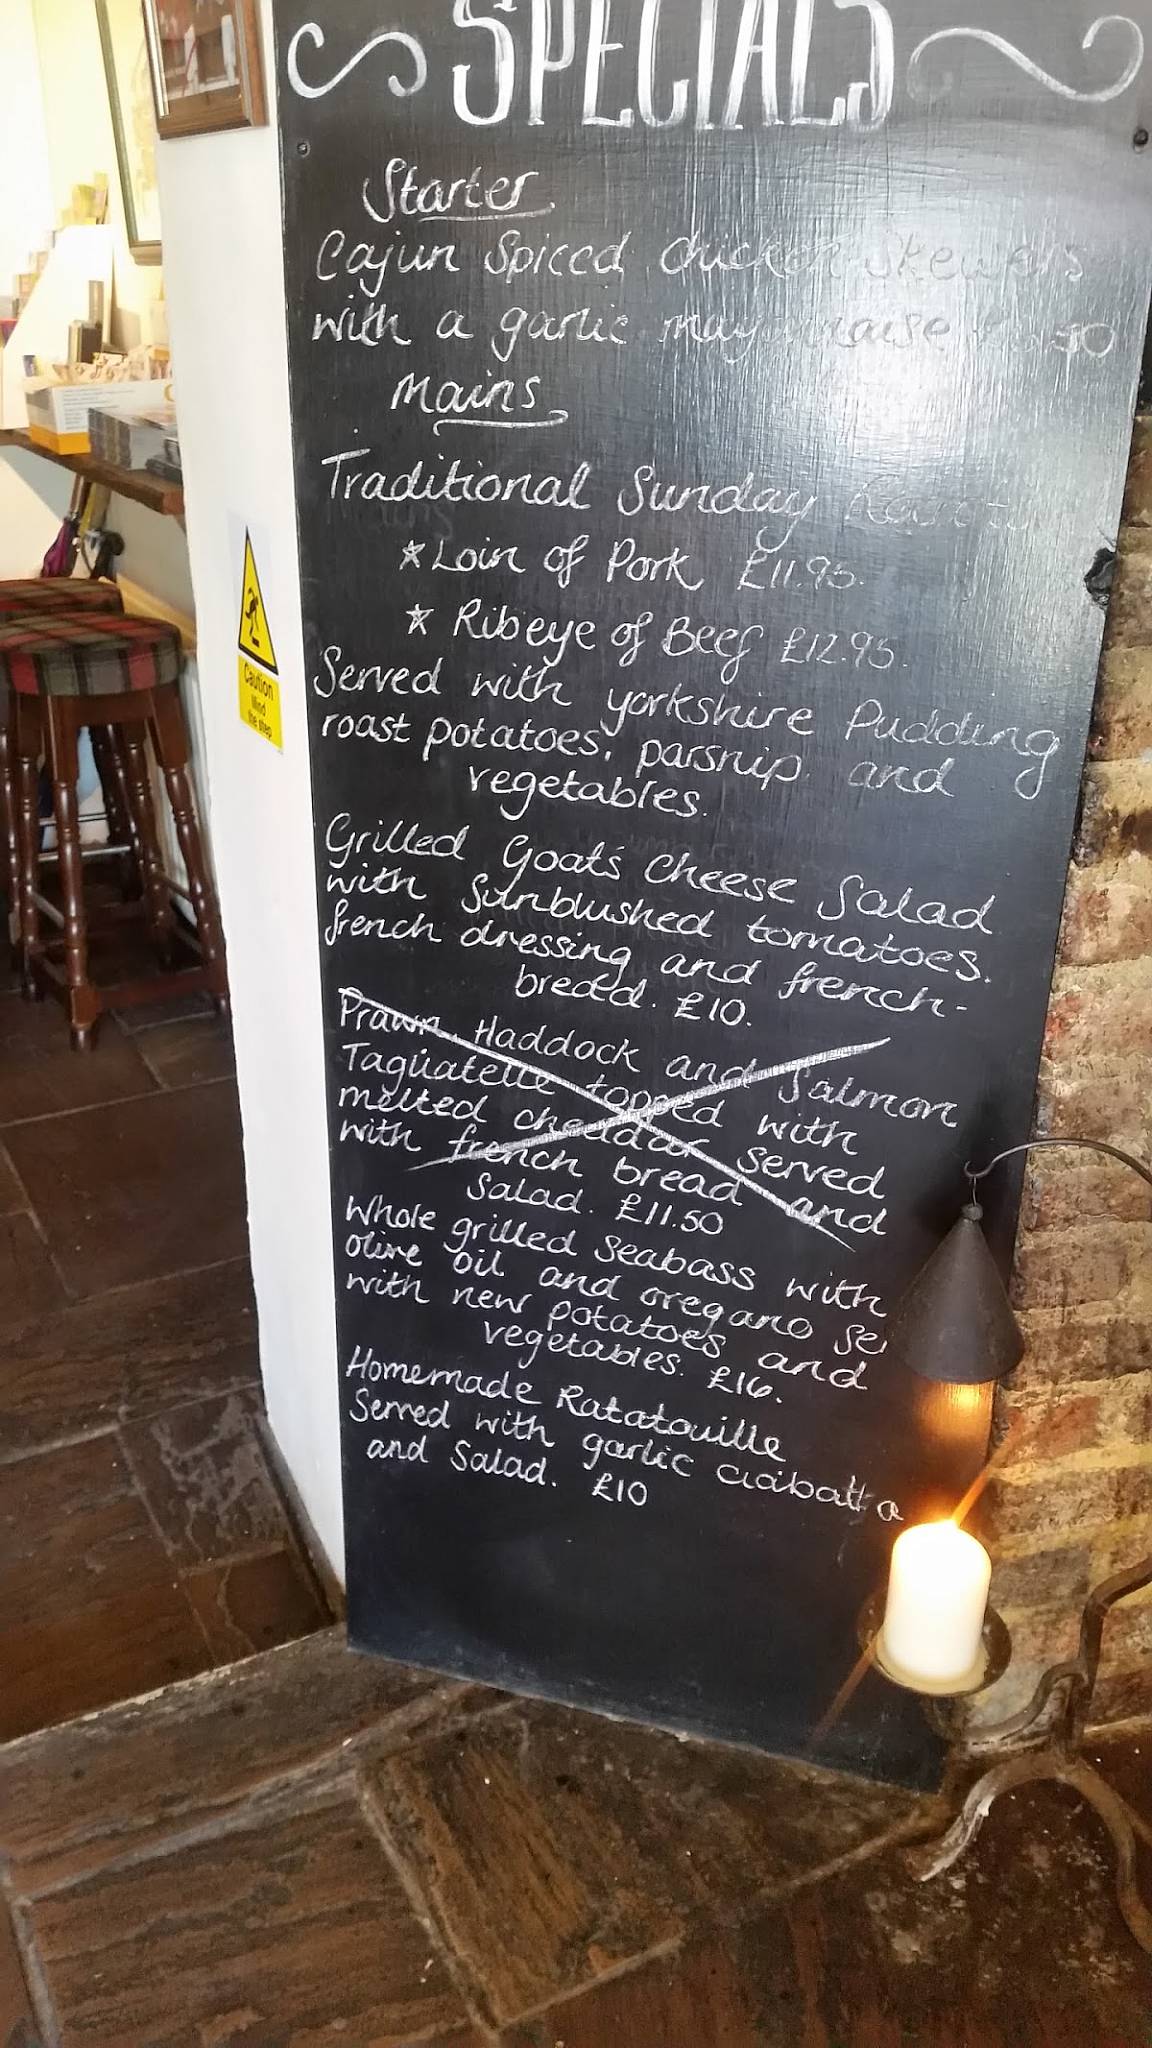 SPECIALS
Starter
Cajun Spiced chicken Skewers
with a garlic mayonnaise
Mains
Traditional Sunday
*Loin of Pork £11.95.
* Ribeye of Beef £12.95.
Served with yorkshire Pudding
roast potatoes, parsnip and
vegetables.
Grilled Goat's Cheese Salad
with Sunblushed tomatoes.
french dressing and french-
bread. £10.
Prawn, Haddock and Salmon
Taguatelle topped with
melted cheddar served
with french bread and
Salad. £11.50
Whole grilled Seabass with
olive oil and oregano
with new potatoes and
vegetables. £16.
Homemade Ratatouille
Served with garlic ciabatta
and Salad. £10
Caution
Mind
the step